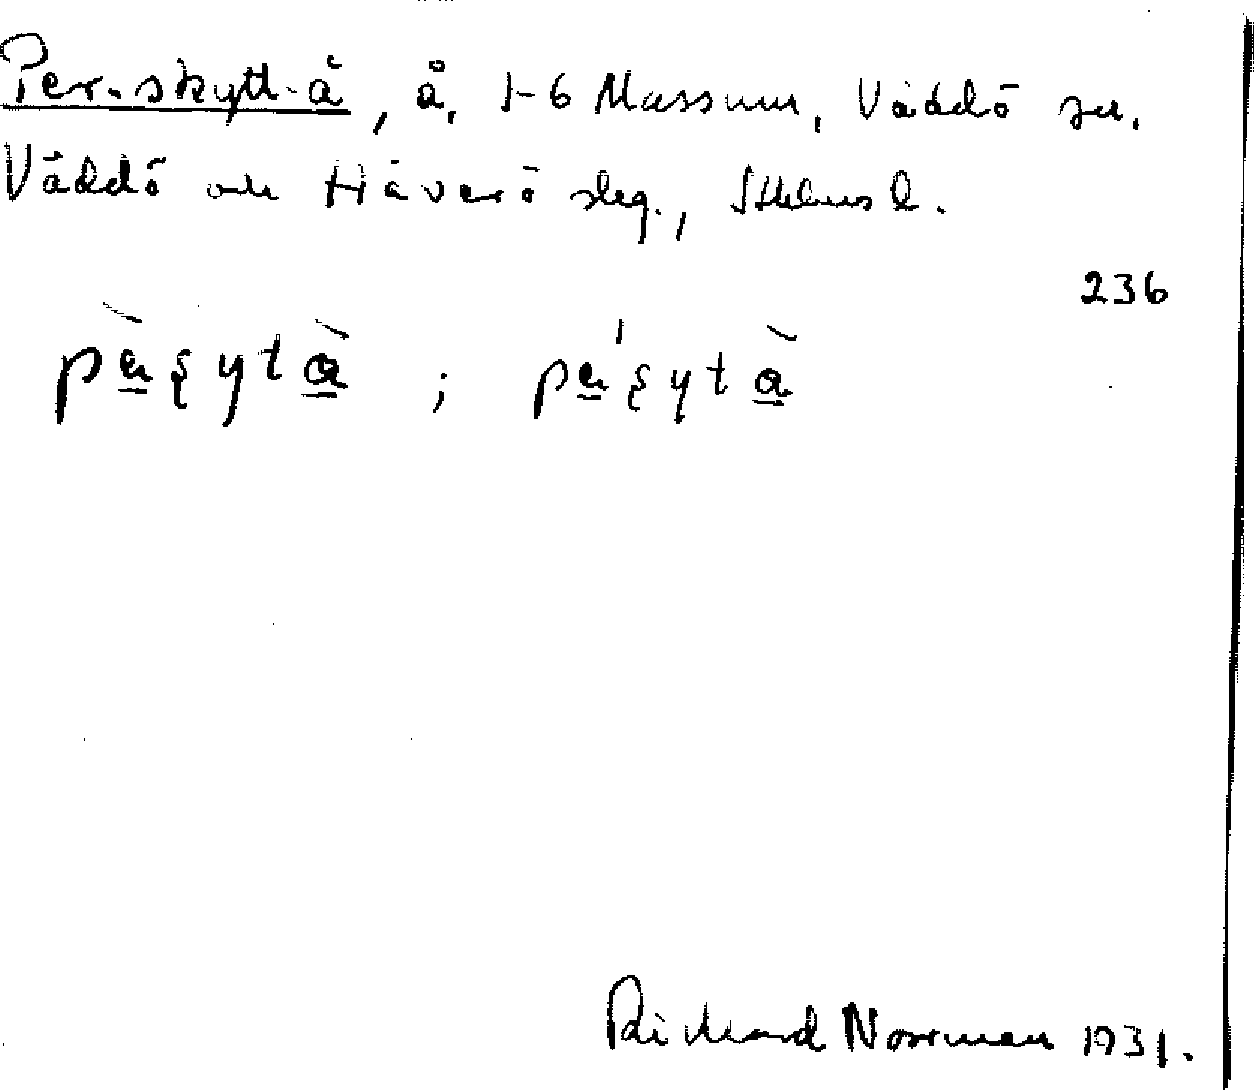 Per-skytt-å, å, 1-6 Massum, Väddö sn.
Väddö och Häverö skg., Sthlms l.
236
Richard Norrman 1931.